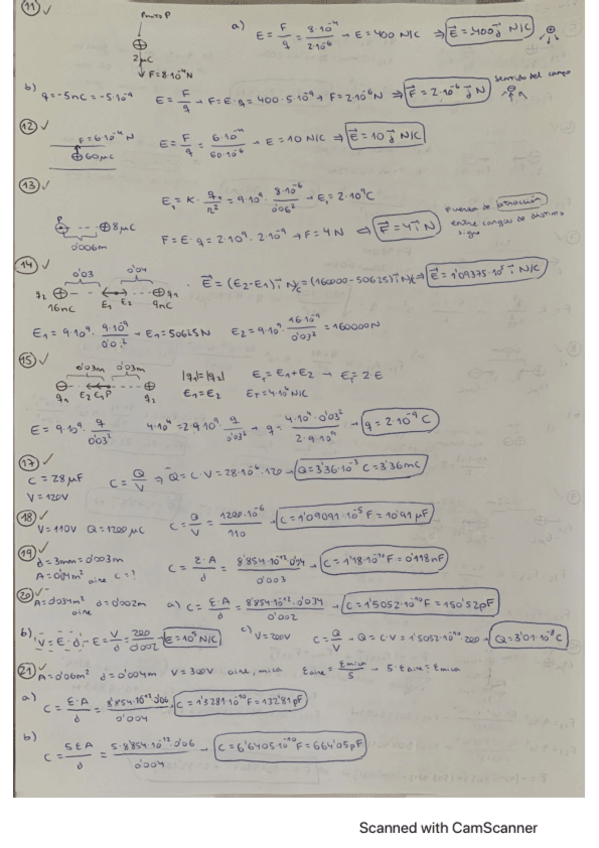 11) ✓
Punto P
⊕
2μC
F=8·10⁻⁴N
a) E = F/q = 8·10⁻⁴/2·10⁻⁶ → E = 400 N/C ⇒ E⃗ = -400j⃗ N/C
b) q=-5nC=-5·10⁻⁹ E = F/q → F=E·q = 400·5·10⁻⁹ → F=2·10⁻⁶N ⇒ F⃗ = 2·10⁻⁶ j⃗ N
12) ✓ F=6·10⁻⁴N E = F/q = 6·10⁻⁴/60·10⁻⁶ → E=10 N/C ⇒ E⃗ = 10 j⃗ N/C
⊕60μC
13) ✓
E₁ = K · q₁/r² = 9·10⁹ · 8·10⁻⁶/0'06² → E₁ = 2·10⁹C
P ⊖ ··· ⊕8μC
0'006m
F=E·q = 2·10⁹ · 2·10⁻⁹ → F=4N ⇒ F⃗ = 4 i⃗ N
Fuerza de atracción entre cargas de distinto signo
14) ✓
0'03 0'04
q₂ ⊕ -- E₁ E₂ --- ⊕ q₁
16nC 9nC
E⃗ = (E₂-E₁) i⃗ N/C = (160000-50625) i⃗ N/C ⇒ E⃗ = 1'09375·10⁵ i⃗ N/C
E₁ = 9·10⁹ · 9·10⁻⁹/0'04² → E₁ = 50625N E₂ = 9·10⁹ · 16·10⁻⁹/0'03² = 160000N
15) ✓
0'03m 0'03m
⊖ --- ⊕
q₁ E₂ E₁ P q₂
|q₁|=|q₂| E_T = E₁+E₂ → E_T = 2·E
E₁ = E₂ E_T = 4·10⁴ N/C
E = 9·10⁹ · q/0'03² 4·10⁴ = 2·9·10⁹ · q/0'03² → q = 4·10⁴·0'03²/2·9·10⁹ → q = 2·10⁻⁹ C
17) ✓
C = 28μF C = Q/V ⇒ Q = C·V = 28·10⁻⁶·120 → Q=3'36·10⁻³ C = 3'36mC
V = 120V
18) ✓
V=110V Q=1200μC C = Q/V = 1200·10⁻⁶/110 → C=1'09091·10⁻⁵F = 10'91μF
19) ✓
d=3mm=0'003m
A=0'04m² aire C=? C = Ɛ·A/d = 8'854·10⁻¹²·0'04/0'003 → C=1'18·10⁻¹⁰F = 0'118nF
20) ✓
A=0'034m² d=0'002m a) C = Ɛ·A/d = 8'854·10⁻¹²·0'034/0'002 → C=1'5052·10⁻¹⁰F = 150'52pF
aire
b) V=E·d → E = V/d = 200/0'002 → E=10⁵N/C c) V=200V C = Q/V → Q=C·V=1'5052·10⁻¹⁰·200 → Q=3'01·10⁻⁸C
21) ✓
A=0'06m² d=0'004m V=300V aire, mica Ɛaire = Ɛmica/5 → 5·Ɛaire = Ɛmica
a)
C = Ɛ·A/d = 8'854·10⁻¹²·0'06/0'004 → C=1'3281·10⁻¹⁰F = 132'81pF
b)
C = 5ƐA/d = 5·8'854·10⁻¹²·0'06/0'004 → C=6'6405·10⁻¹⁰F = 664'05pF
Scanned with CamScanner